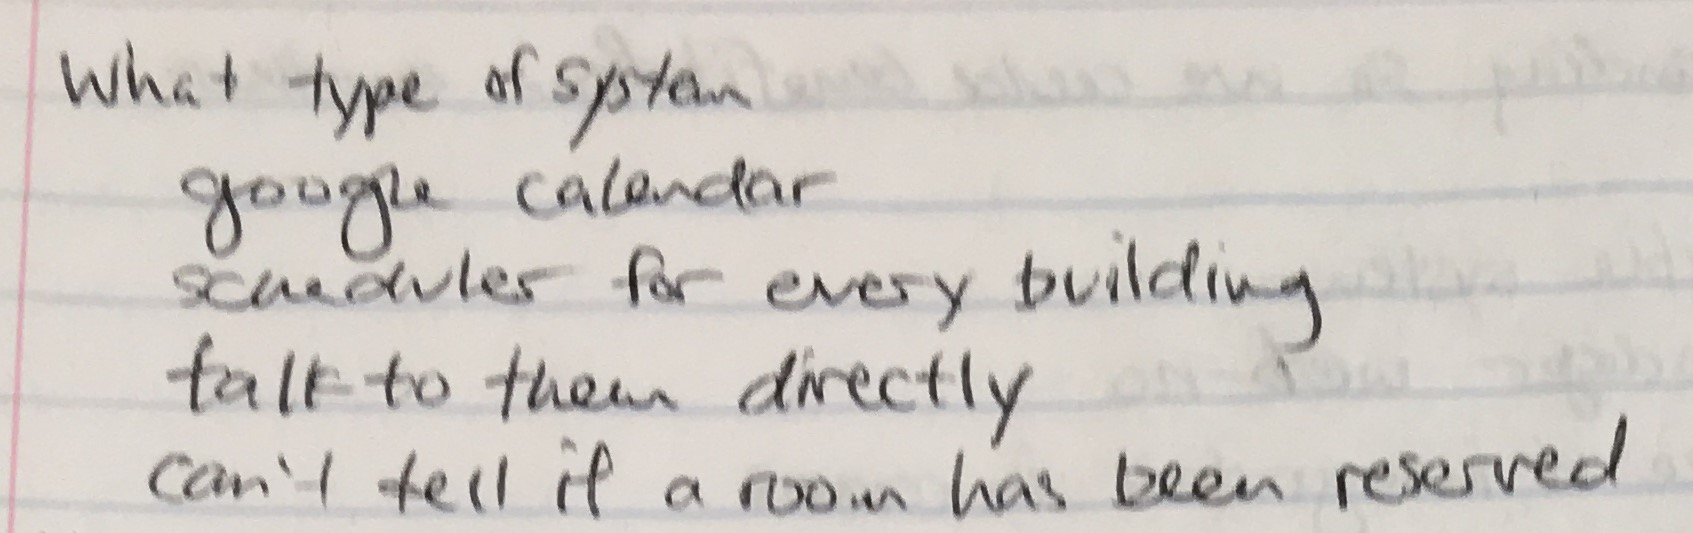 What type of system
google calendar
scheduler for every building
talk to them directly
can't tell if a room has been reserved